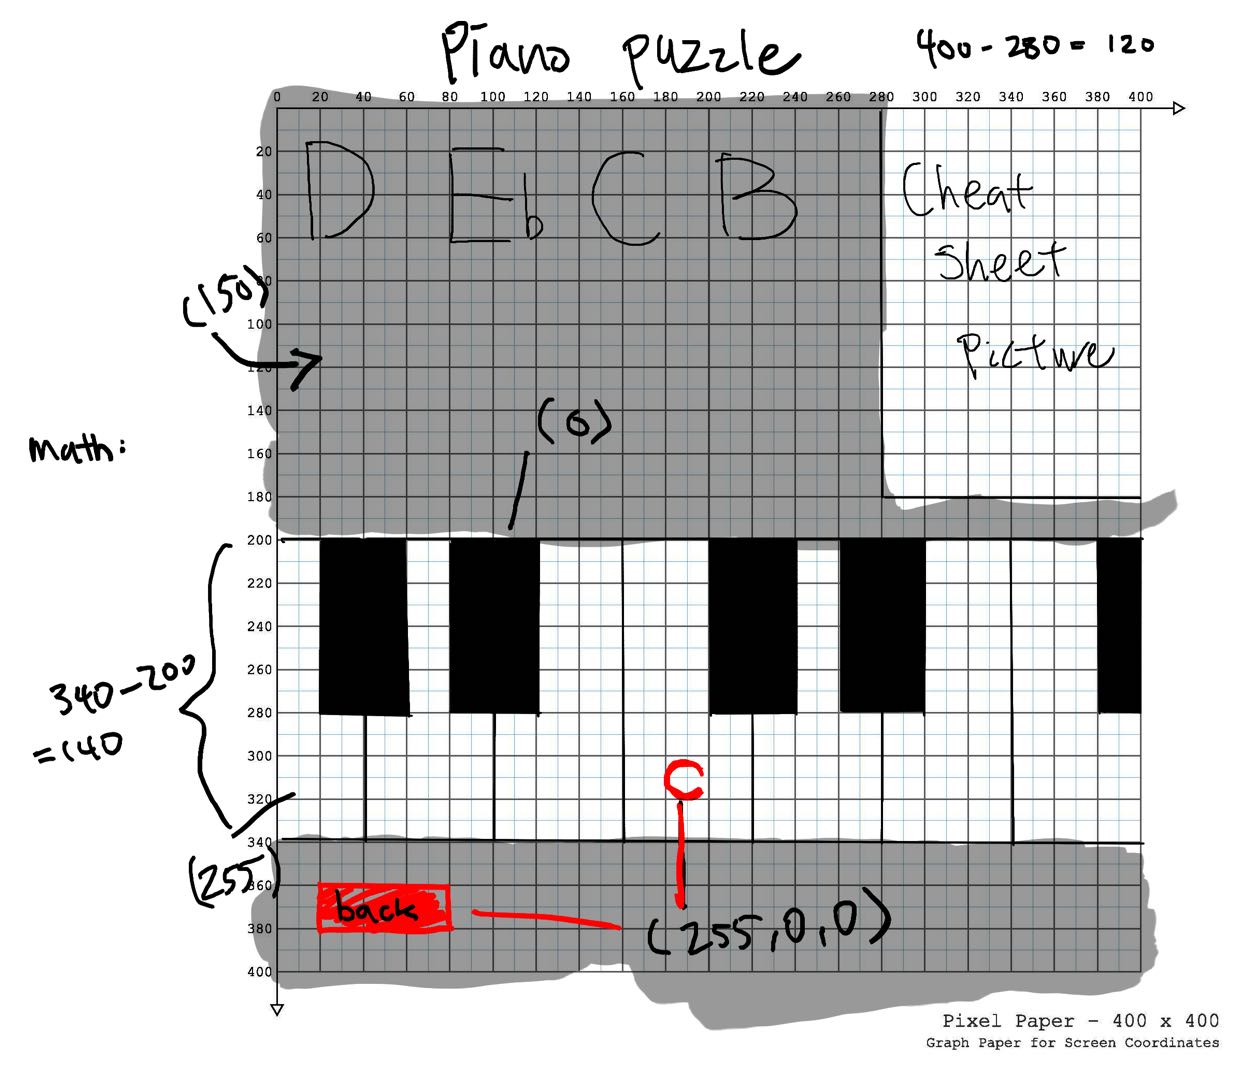 Piano puzzle
400 - 280 = 120
0 20 40 60 80 100 120 140 160 180 200 220 240 260 280 300 320 340 360 380 400
20
40
60
80
100
120
140
160
180
200
220
240
260
280
300
320
340
360
380
400
D Eb C B
Cheat
Sheet
Picture
(150)
(0)
math:
340-200
=140
C
(255)
back
(255,0,0)
Pixel Paper - 400 x 400
Graph Paper for Screen Coordinates